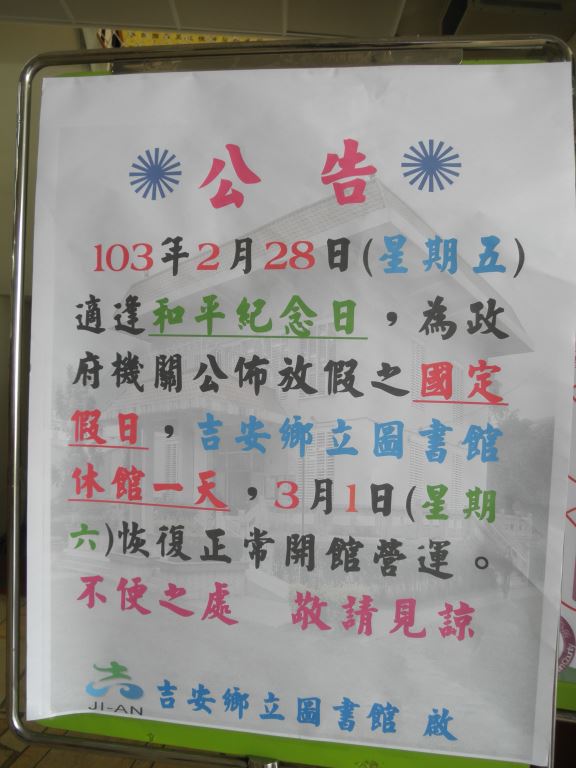 公告
103年2月28日(星期五)
適逢和平紀念日，為政
府機關公佈放假之國定
假日，吉安鄉立圖書館
休館一天，3月1日(星期
六)恢復正常開館營運。
不便之處 敬請見諒
JI-AN 吉安鄉立圖書館 啟